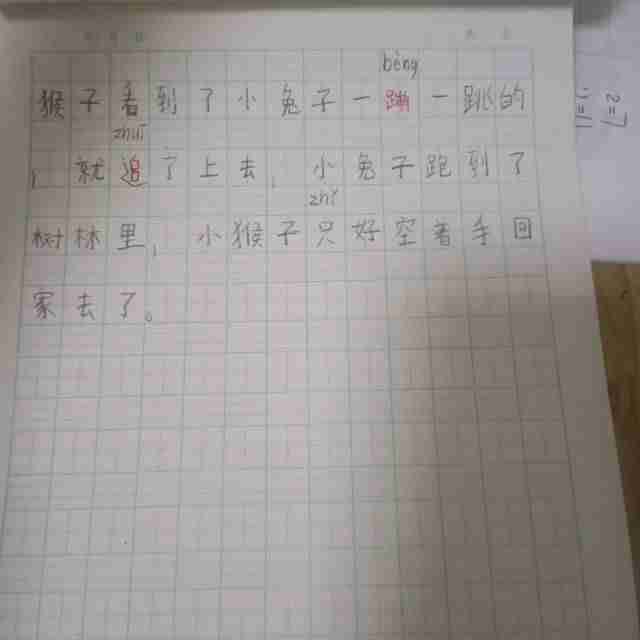 bèng
猴子看到了小兔子一蹦一跳的
zhuī
，就追了上去，小兔子跑到了
zhǐ
树林里，小猴子只好空着手回
家去了。